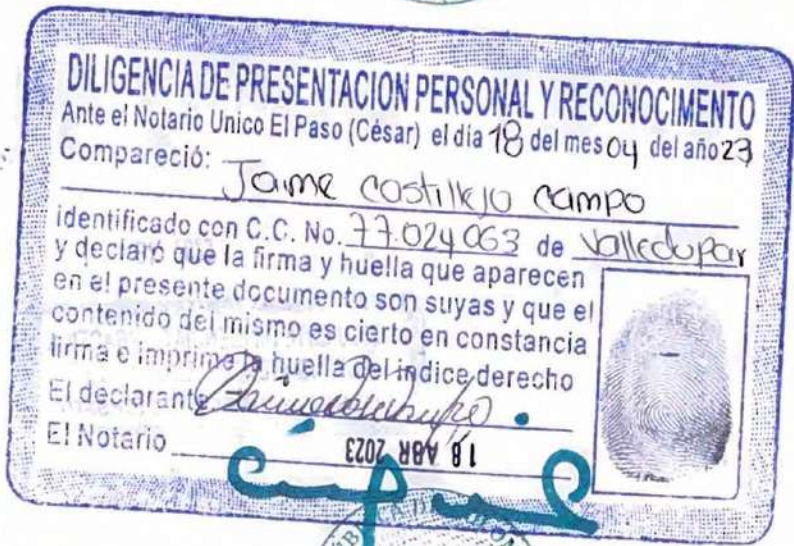 DILIGENCIA DE PRESENTACION PERSONAL Y RECONOCIMENTO
Ante el Notario Unico El Paso (César) el día 18 del mes 04 del año 23
Compareció:
Jaime castillejo campo
identificado con C.C. No. 77.024.063 de Valledupar
y declaró que la firma y huella que aparecen
en el presente documento son suyas y que el
contenido del mismo es cierto en constancia
firma e imprime la huella del indice derecho
El declarante
El Notario
18 ABR 2023